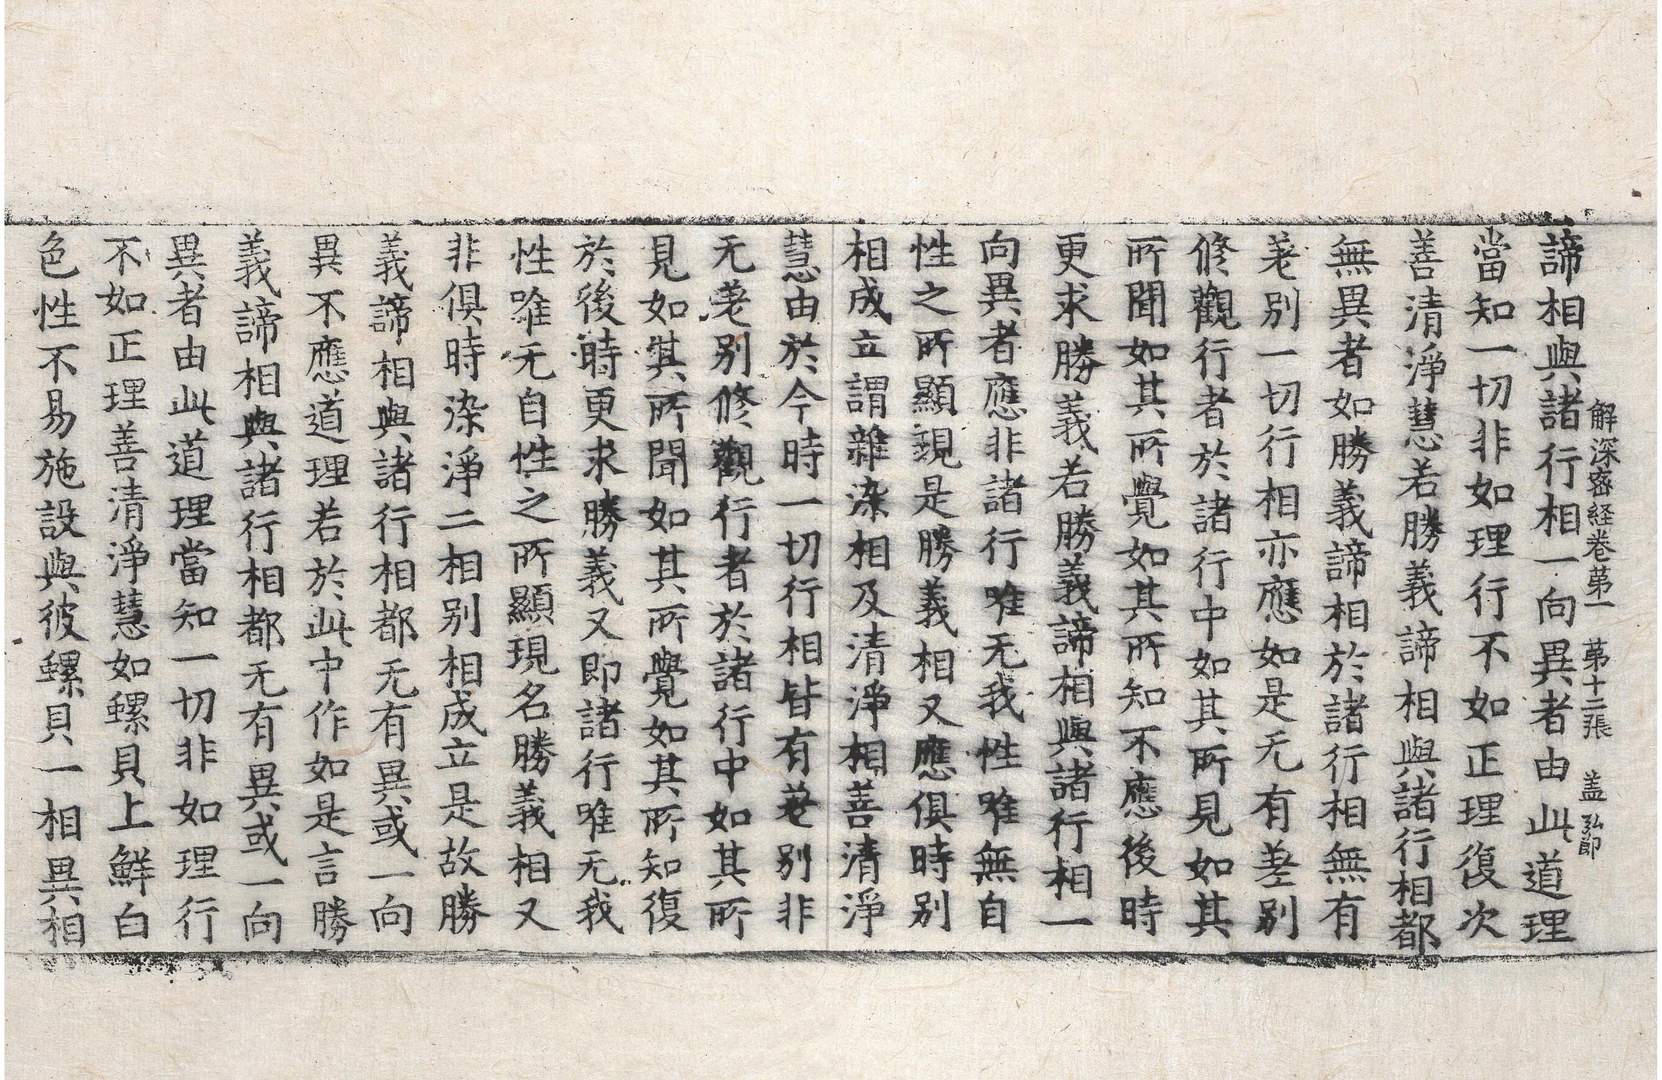 解深密経卷苐一 苐十二張 盖 弘節
諦相與諸行相一向異者由此道理
當知一切非如理行不如正理復次
善清淨慧若勝義諦相與諸行相都
無異者如勝義諦相於諸行相無有
差別一切行相亦應如是无有差別
修觀行者於諸行中如其所見如其
所聞如其所覺如其所知不應後時
更求勝義若勝義諦相與諸行相一
向異者應非諸行唯无我性唯無自
性之所顯現是勝義相又應俱時別
相成立謂雜染相及清淨相善清淨
慧由於今時一切行相皆有差別非
无差別修觀行者於諸行中如其所
見如其所聞如其所覺如其所知復
於後時更求勝義又即諸行唯无我
性唯无自性之所顯現名勝義相又
非俱時染淨二相別相成立是故勝
義諦相與諸行相都无有異或一向
異不應道理若於此中作如是言勝
義諦相與諸行相都无有異或一向
異者由此道理當知一切非如理行
不如正理善清淨慧如螺貝上鮮白
色性不易施設與彼螺貝一相異相